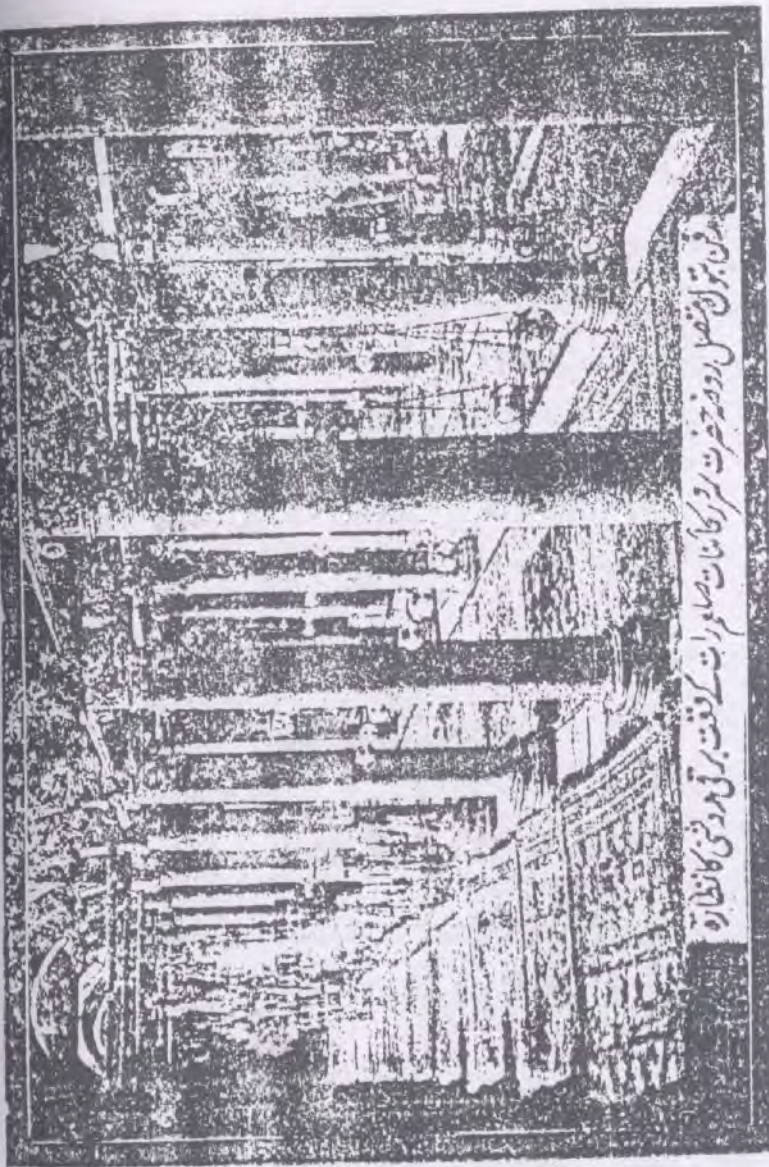 مدفن بتولؑ متصل روضہ حضرت سرور کائنات صلعم رات کے وقت برقی روشنی کا نظارہ